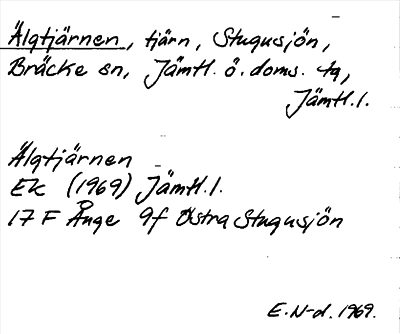 Älgtjärnen, tjärn, Stugusjön,
Bräcke sn, Jämtl. ö. doms. tg,
Jämtl. l.
Älgtjärnen
EK (1969) Jämtl. l.
17 F Ånge 9f Östra Stugusjön
E. N-d. 1969.